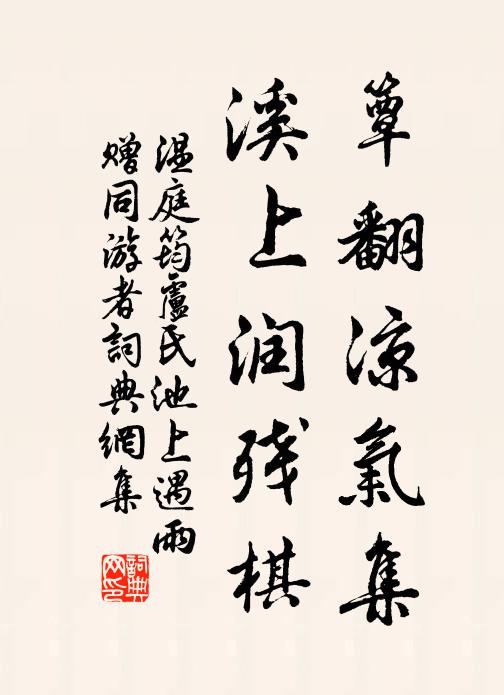 簟翻凉氣集
溪上润残棋
温庭筠盧氏池上遇雨
赠同游者詞典網集
詞典网印